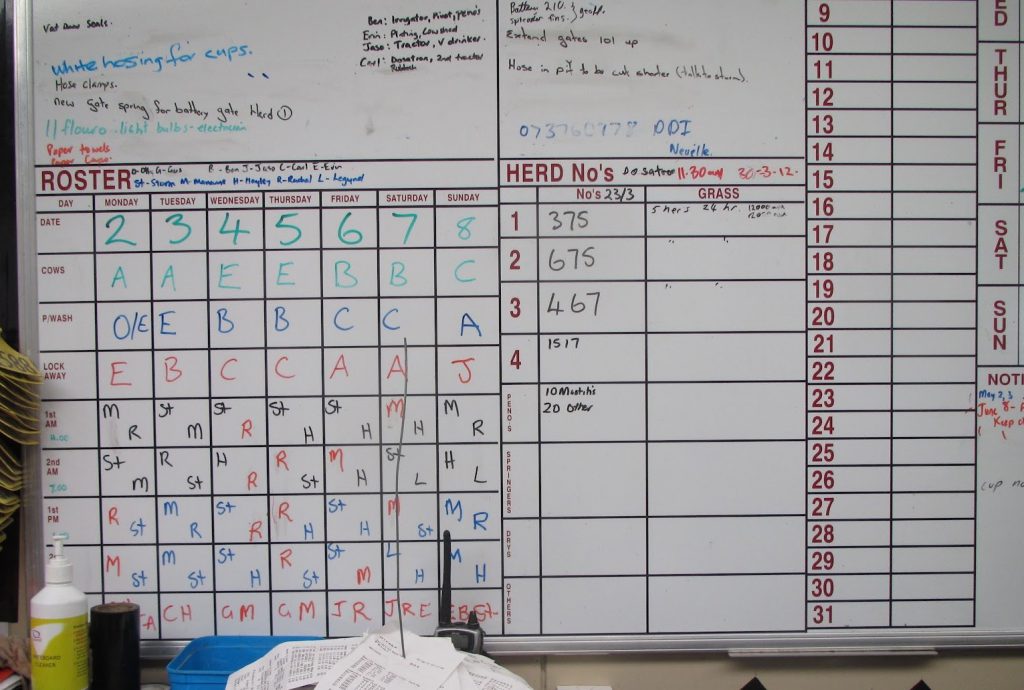 Vat Door Seals.
white hosing for cups.
Hose clamps.
new gate spring for battery gate Herd ①
11 flouro light bulbs - electrician
Paper towels
Ben: Irrigator, Pivot, peno's
Erin: Plating, Cowshed
Jaso: Tractor, V drinker.
Carl: Dosatron, 2nd tractor
Extend gates 101 up
Hose in pit to be cut shorter (talk to storm).
DDI
Neville.
ROSTER
G-Gus B-Ben J-Jaso C-Carl E-Erin
St-Storm M- H-Hayley R-Rachel L-
DAY MONDAY TUESDAY WEDNESDAY THURSDAY FRIDAY SATURDAY SUNDAY
DATE 2 3 4 5 6 7 8
COWS A A E E B B C
P/WASH O/E E B B C C A
LOCK AWAY E B C C A A J
1st AM 4.00 M R St M St R St H St H M H M R
2nd AM 7.00 St M R St H R R St M H St L H L
1st PM R St M R St R R H St H M St M R
M St M St St H R St St M L H M H
A CH GM GM JR JRE EBSt
HERD No's Dosatron 11.30 30-3-12.
No's 23/3 GRASS
1 375 24 hr.
2 675 " "
3 467 " "
4 1517
PENO'S 10 Mastitis
20 Other
SPRINGERS
DRYS
OTHERS
9
10
11
12
13
14
15
16
17
18
19
20
21
22
23
24
25
26
27
28
29
30
31
ED
THUR
FRI
SAT
SUN
NOTI
May 2, 3
June 8-
Keep
cup